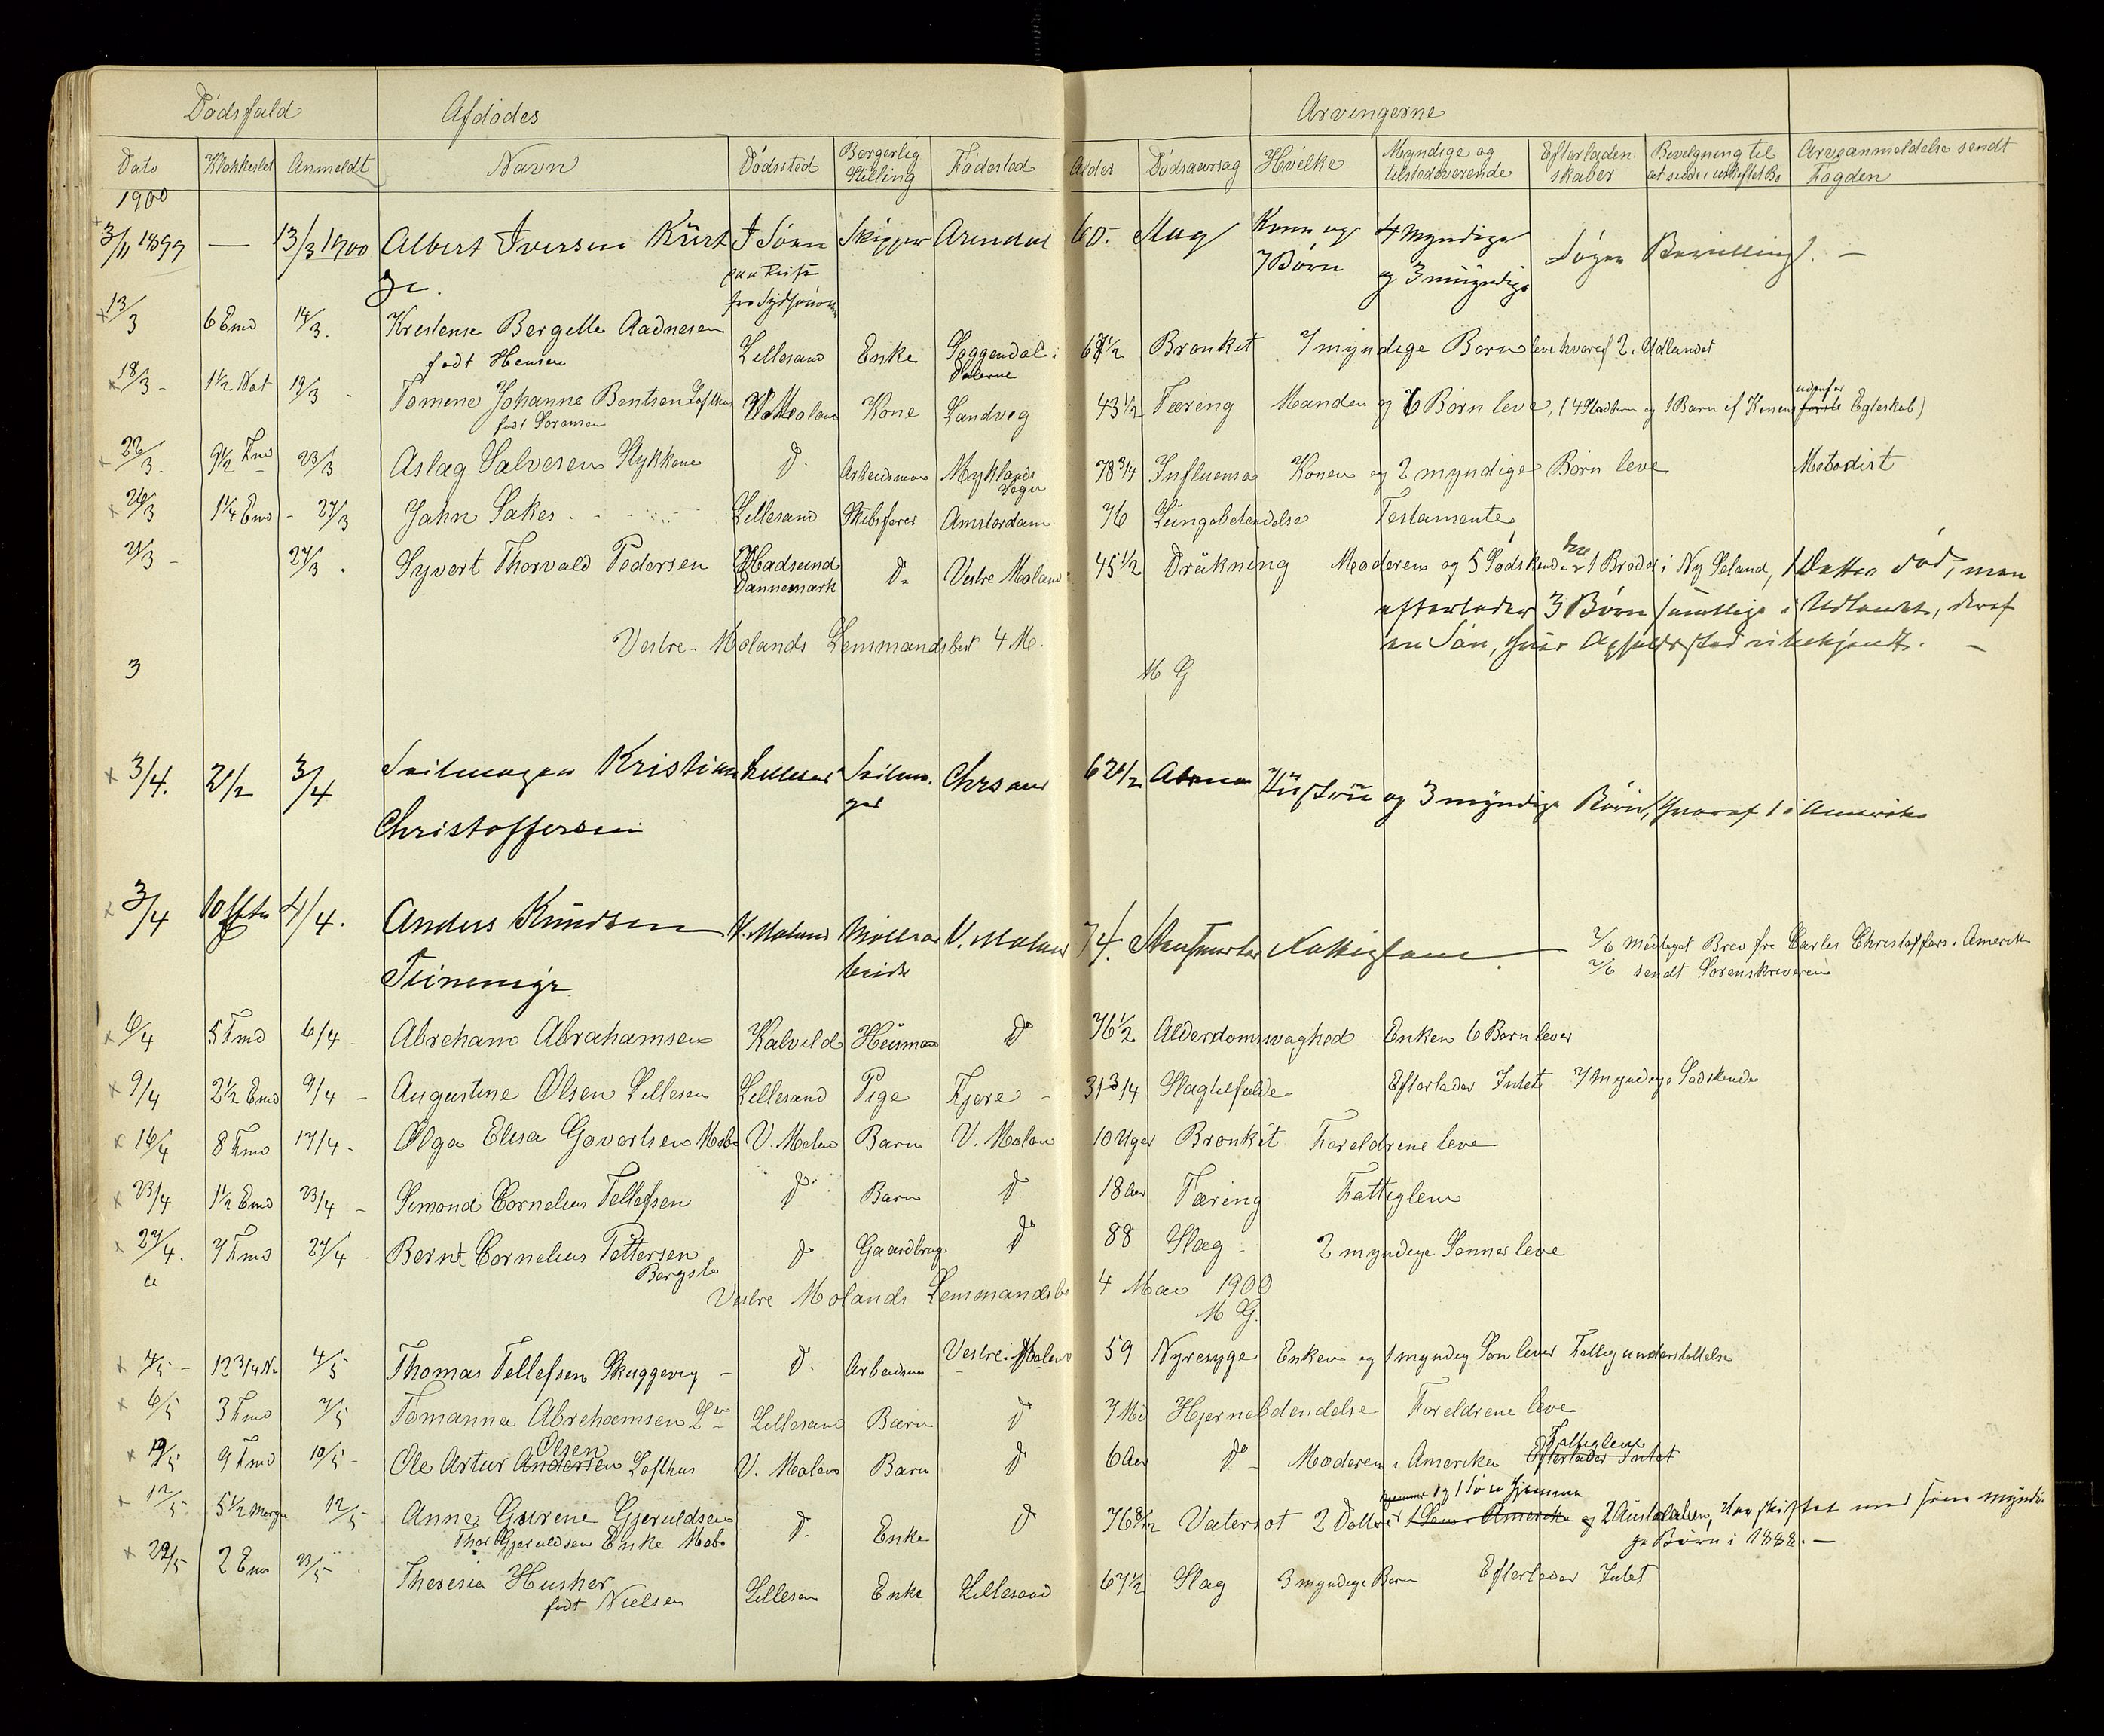 Dødsfald Afdødes Arvingerne
Dato Klokkeslet Anmeldt Navn Dødssted Borgerlig Stilling Fødested Alder Dødsaarsag Hvilke Myndige og tilstedeværende Efterladenskaber Bevilgning til Arveanmeldelse sendt Fogden
1900
3/11 1899 — 13/3 1900 Albert Iversen I Søen Skipper Arendal 60. Slag Kone og 4 myndige Søger Bevilling. —
paa Reise 7 Børn og 3 umyndige
13/3 6 Emd 14/3. Krestense Bergette Aadnesen
født Hensen Lillesand Enke Soggendal i 67 1/2 Bronket 7 myndige Børn leve hvoraf 2 i Udlandet
Dalerne
18/3 - 1 1/2 Nat 19/3 - Tomene Johanne Bentsen Lofthus V. Moland Kone Landvig 43 1/2 Tæring Manden og 6 Børn leve, (4 og 1 Barn af Konens udenfor første Egteskab)
født Sørensen
22/3. 9 1/2 Fmd 23/3 Aslag Salvesen Stykkene d. Arbeidsman Myklands 78 3/4 Influensa Konen og 2 myndige Børn leve Metodist
Sogn
26/3 1 1/4 Emd - 27/3 Jahn Sakes Lillesand Skibsfører Amsterdam 76 Lungebetendelse Testamente
27/3 - 27/3. Syvert Thorvald Pedersen Hadsund d. Vestre Moland 45 1/2 Drukning Moderen og 5 Sødskende 1 Broder i Ny Seland, 1 Datter død, men
Dannemark efterlader 3 Børn samtlige i Udlandet, deraf
Vestre-Molands Lensmandsbest 4 M. en Søn, hvis Opholdssted ubekjendt. —
3 M G
3/4. 2 1/2 3/4 Seilmager Kristian Lillesand Seilmager Chrsand 62 1/2 Hustru og 3 myndige Børn, hvoraf 1 i Amerika
Christoffersen
3/4 10 4/4. Anders Knudsen V. Moland V. Moland 74. Fattiglem — 7/6 modtaget Brev fra Carles Christoffers. Amerika
7/6 sendt Sorenskriveren
6/4 5 Fmd 6/4 - Abreham Abrahamsen Kalvild Husman d 76 1/2 Alderdomsvaghed Enken 6 Børn lever
9/4 2 1/2 Emd 9/4 - Augustine Olsen Lillesan Lillesand Pige Fjere - 31 3/4 Slagtilfælde Efterlader Intet 7 myndige Sødskende
16/4 8 Fmd 17/4 - Olga Elisa Govertsen Mobe V. Molan Barn V. Molan 10 Uger Bronkit Foreldrene leve
23/4 1 1/2 Emd 23/4 - Semond Cornelius Tellefsen d Barn d 18 Aar Tæring Fattiglem
27/4. 7 Fmd 27/4. Bernt Cornelius Pettersen d Gaardbrug. d 88 Slag - 2 myndige Sønner leve
Bergslo
Vestre Molands Lensmandsbe 4 Mai 1900
M G.
4/5 - 12 3/4 Na 4/5 Thomas Tellefsen Skuggevig - d. Arbeidsman Vestre Molan 59 Nyresyge Enken og 1 myndig Søn lever Fattigunderstøttelse
6/5 3 Fmd 7/5 Tomanna Abrehamsen Lillesand Barn d 7 Md Hjernebetendelse Foreldrene leve
9/5 9 Fmd 10/5 - Ole Artur Andersen Olsen Lofthus V. Molan Barn d 6 Aar d - Moderen i Amerika Efterlader Intet Fattiglem
12/5. 5 1/2 Morge 12/5 Anne Gurene Gjeruldsen d. Enke d 76 8/12 Vatersot 2 Døttre 1 Søn i Amerika og 2 Australien, Har skiftet med sine myndi-
Thor Gjeruldsens Enke Mobe og 1 Søn hjemme ge Børn i 1888. —
22/5 2 Emd 23/5 Theresia Husher Lillesan Enke Lillesand 67 1/2 Slag 3 myndige Børn Efterlader Intet
født Nielsen